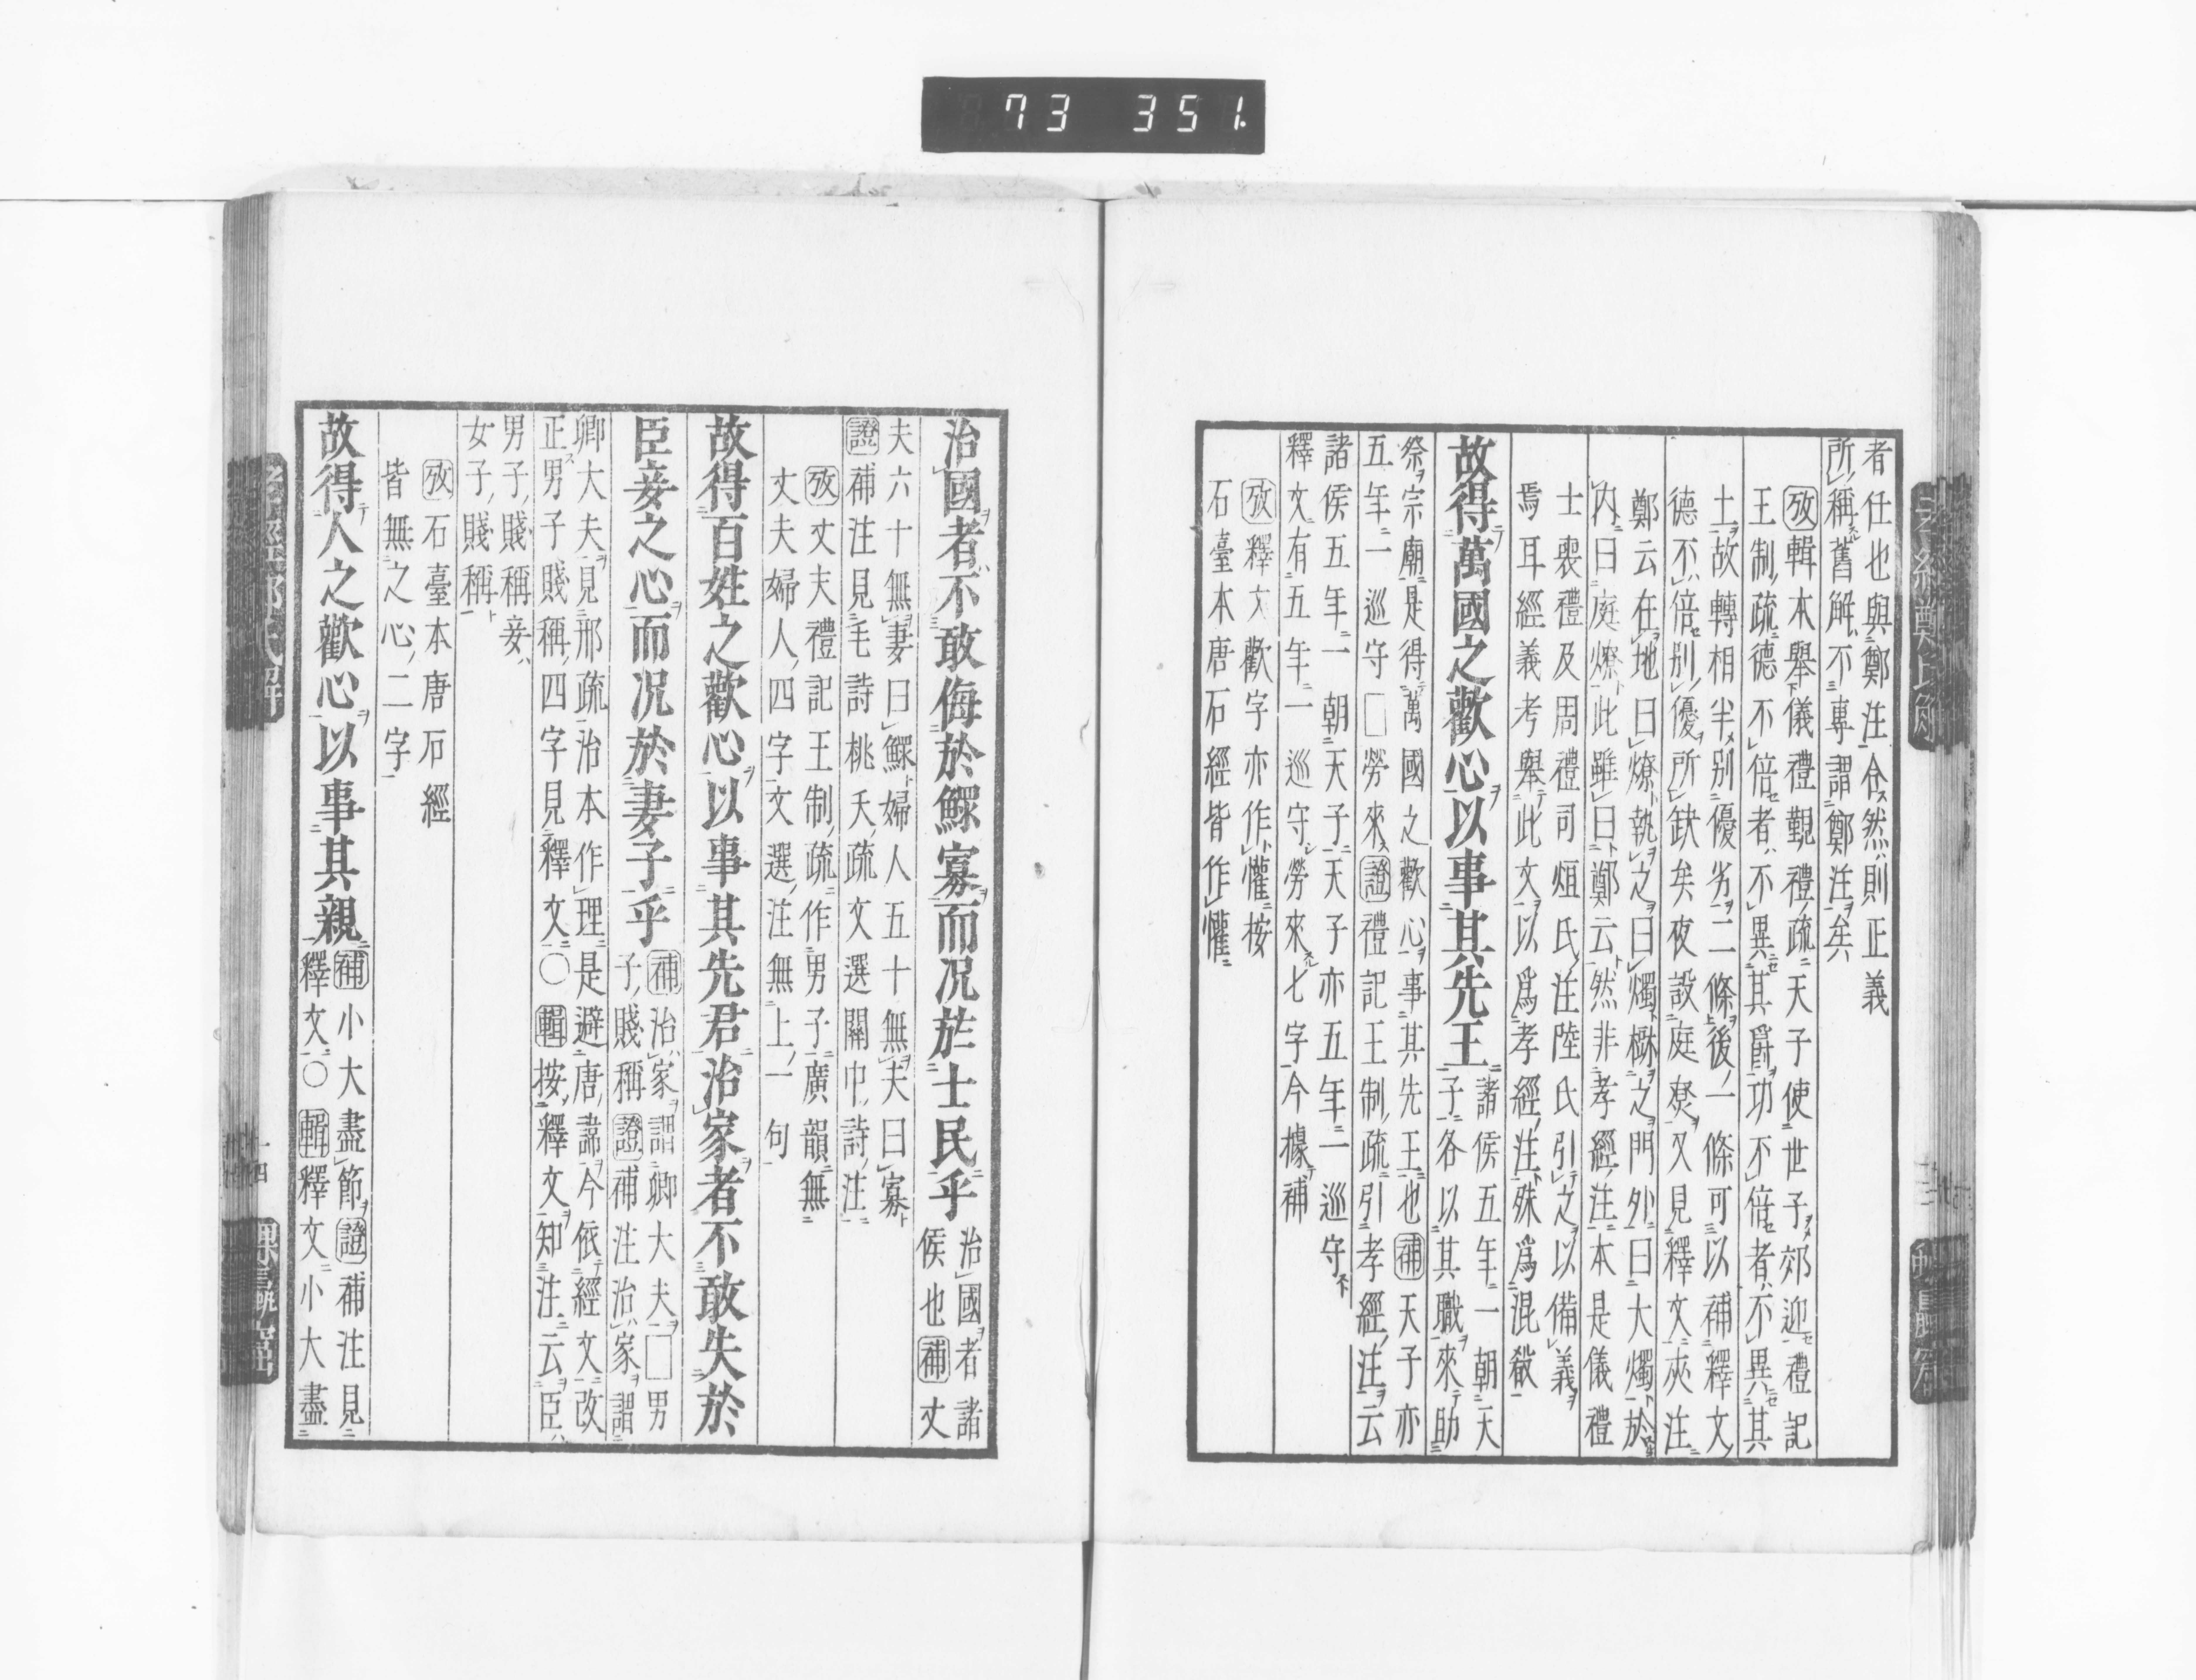 73 351
者任也與鄭注合然則正義
所稱舊解不專謂鄭注矣
攷輯本舉儀禮覲禮疏天子使世子郊迎禮記
王制疏德不倍者不異其爵功不倍者不異其
土故轉相半別優劣二條後一條可以補釋文
德不倍別優所缺矣夜設庭燎又見釋文夾注
鄭云在地曰燎執之曰燭樹之門外曰大燭於
內曰庭燎此雖曰鄭云然非孝經注本是儀禮
士喪禮及周禮司烜氏注陸氏引之以備義
焉耳經義考舉此文以爲孝經注殊爲混殽
故得萬國之歡心以事其先王
諸侯五年一朝天
子各以其職來助
祭宗廟是得萬國之歡心事其先王也補天子亦
五年一巡守□勞來證禮記王制疏引孝經注云
諸侯五年一朝天子天子亦五年一巡守
釋文有五年一巡守勞來七字今據補
攷釋文歡字亦作懽按
石臺本唐石經皆作懽
治國者不敢侮於鰥寡而況於士民乎
治國者諸
侯也補丈
夫六十無妻曰鰥婦人五十無夫曰寡
證補注見毛詩桃夭疏文選關中詩注
攷丈夫禮記王制疏作男子廣韻無
丈夫婦人四字文選注無上一句
故得百姓之歡心以事其先君治家者不敢失於
臣妾之心而況於妻子乎
補治家謂卿大夫□男
子賤稱證補注治家謂
卿大夫見邢疏治本作理是避唐諱今依經文改
正男子賤稱四字見釋文○輯按釋文知注云臣
男子賤稱妾
女子賤稱
攷石臺本唐石經
皆無之心二字
故得人之歡心以事其親
補小大盡節證補注見
釋文○輯釋文小大盡
孝經鄭氏解
十四